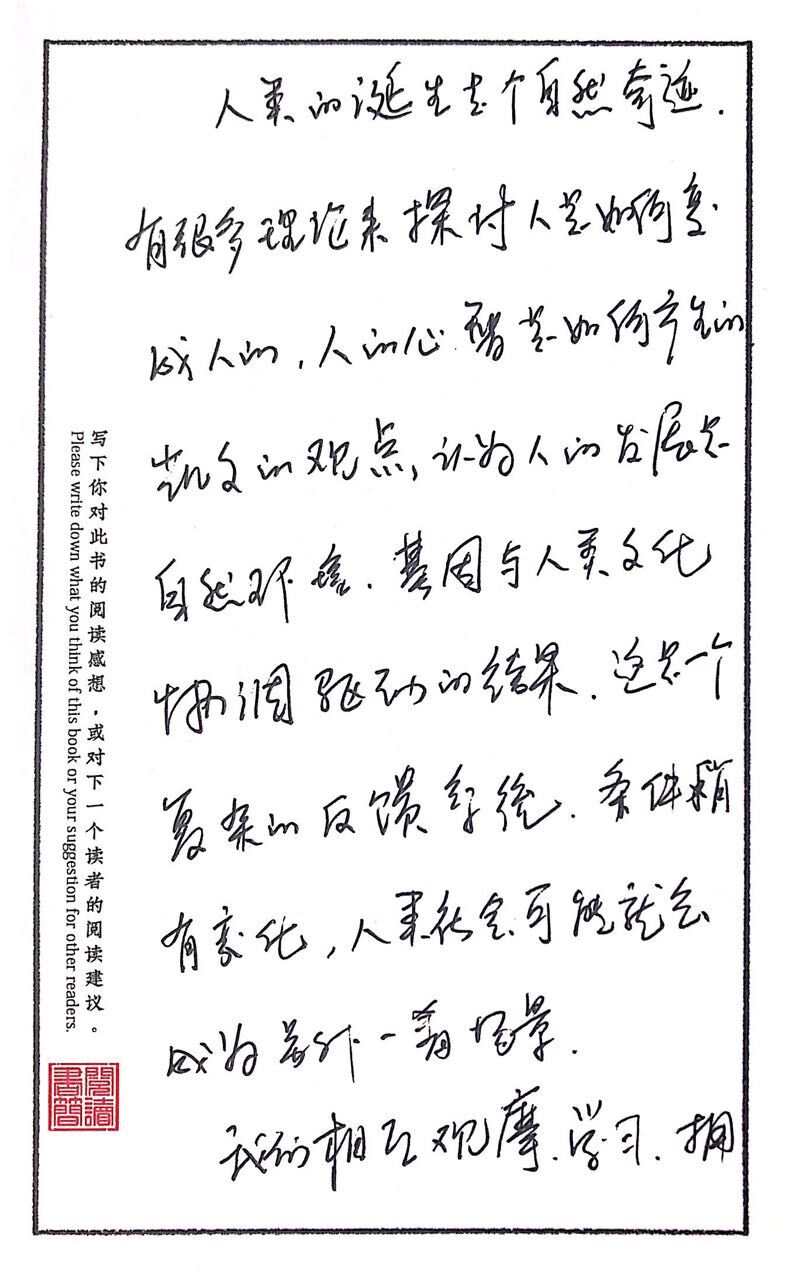 人类的诞生是个自然奇迹.
有很多理论来探讨人是如何变
成人的,人的心智是如何产生的
凯文的观点,认为人的发展是
自然环境、基因与人类文化
协调驱动的结果.这是一个
复杂的反馈系统.条件稍
有变化,人类社会可能就会
成为另外一番场景.
我们相互观摩、学习、拥
写下你对此书的阅读感想,或对下一个读者的阅读建议。
Please write down what you think of this book or your suggestion for other readers.
閱讀
書簡